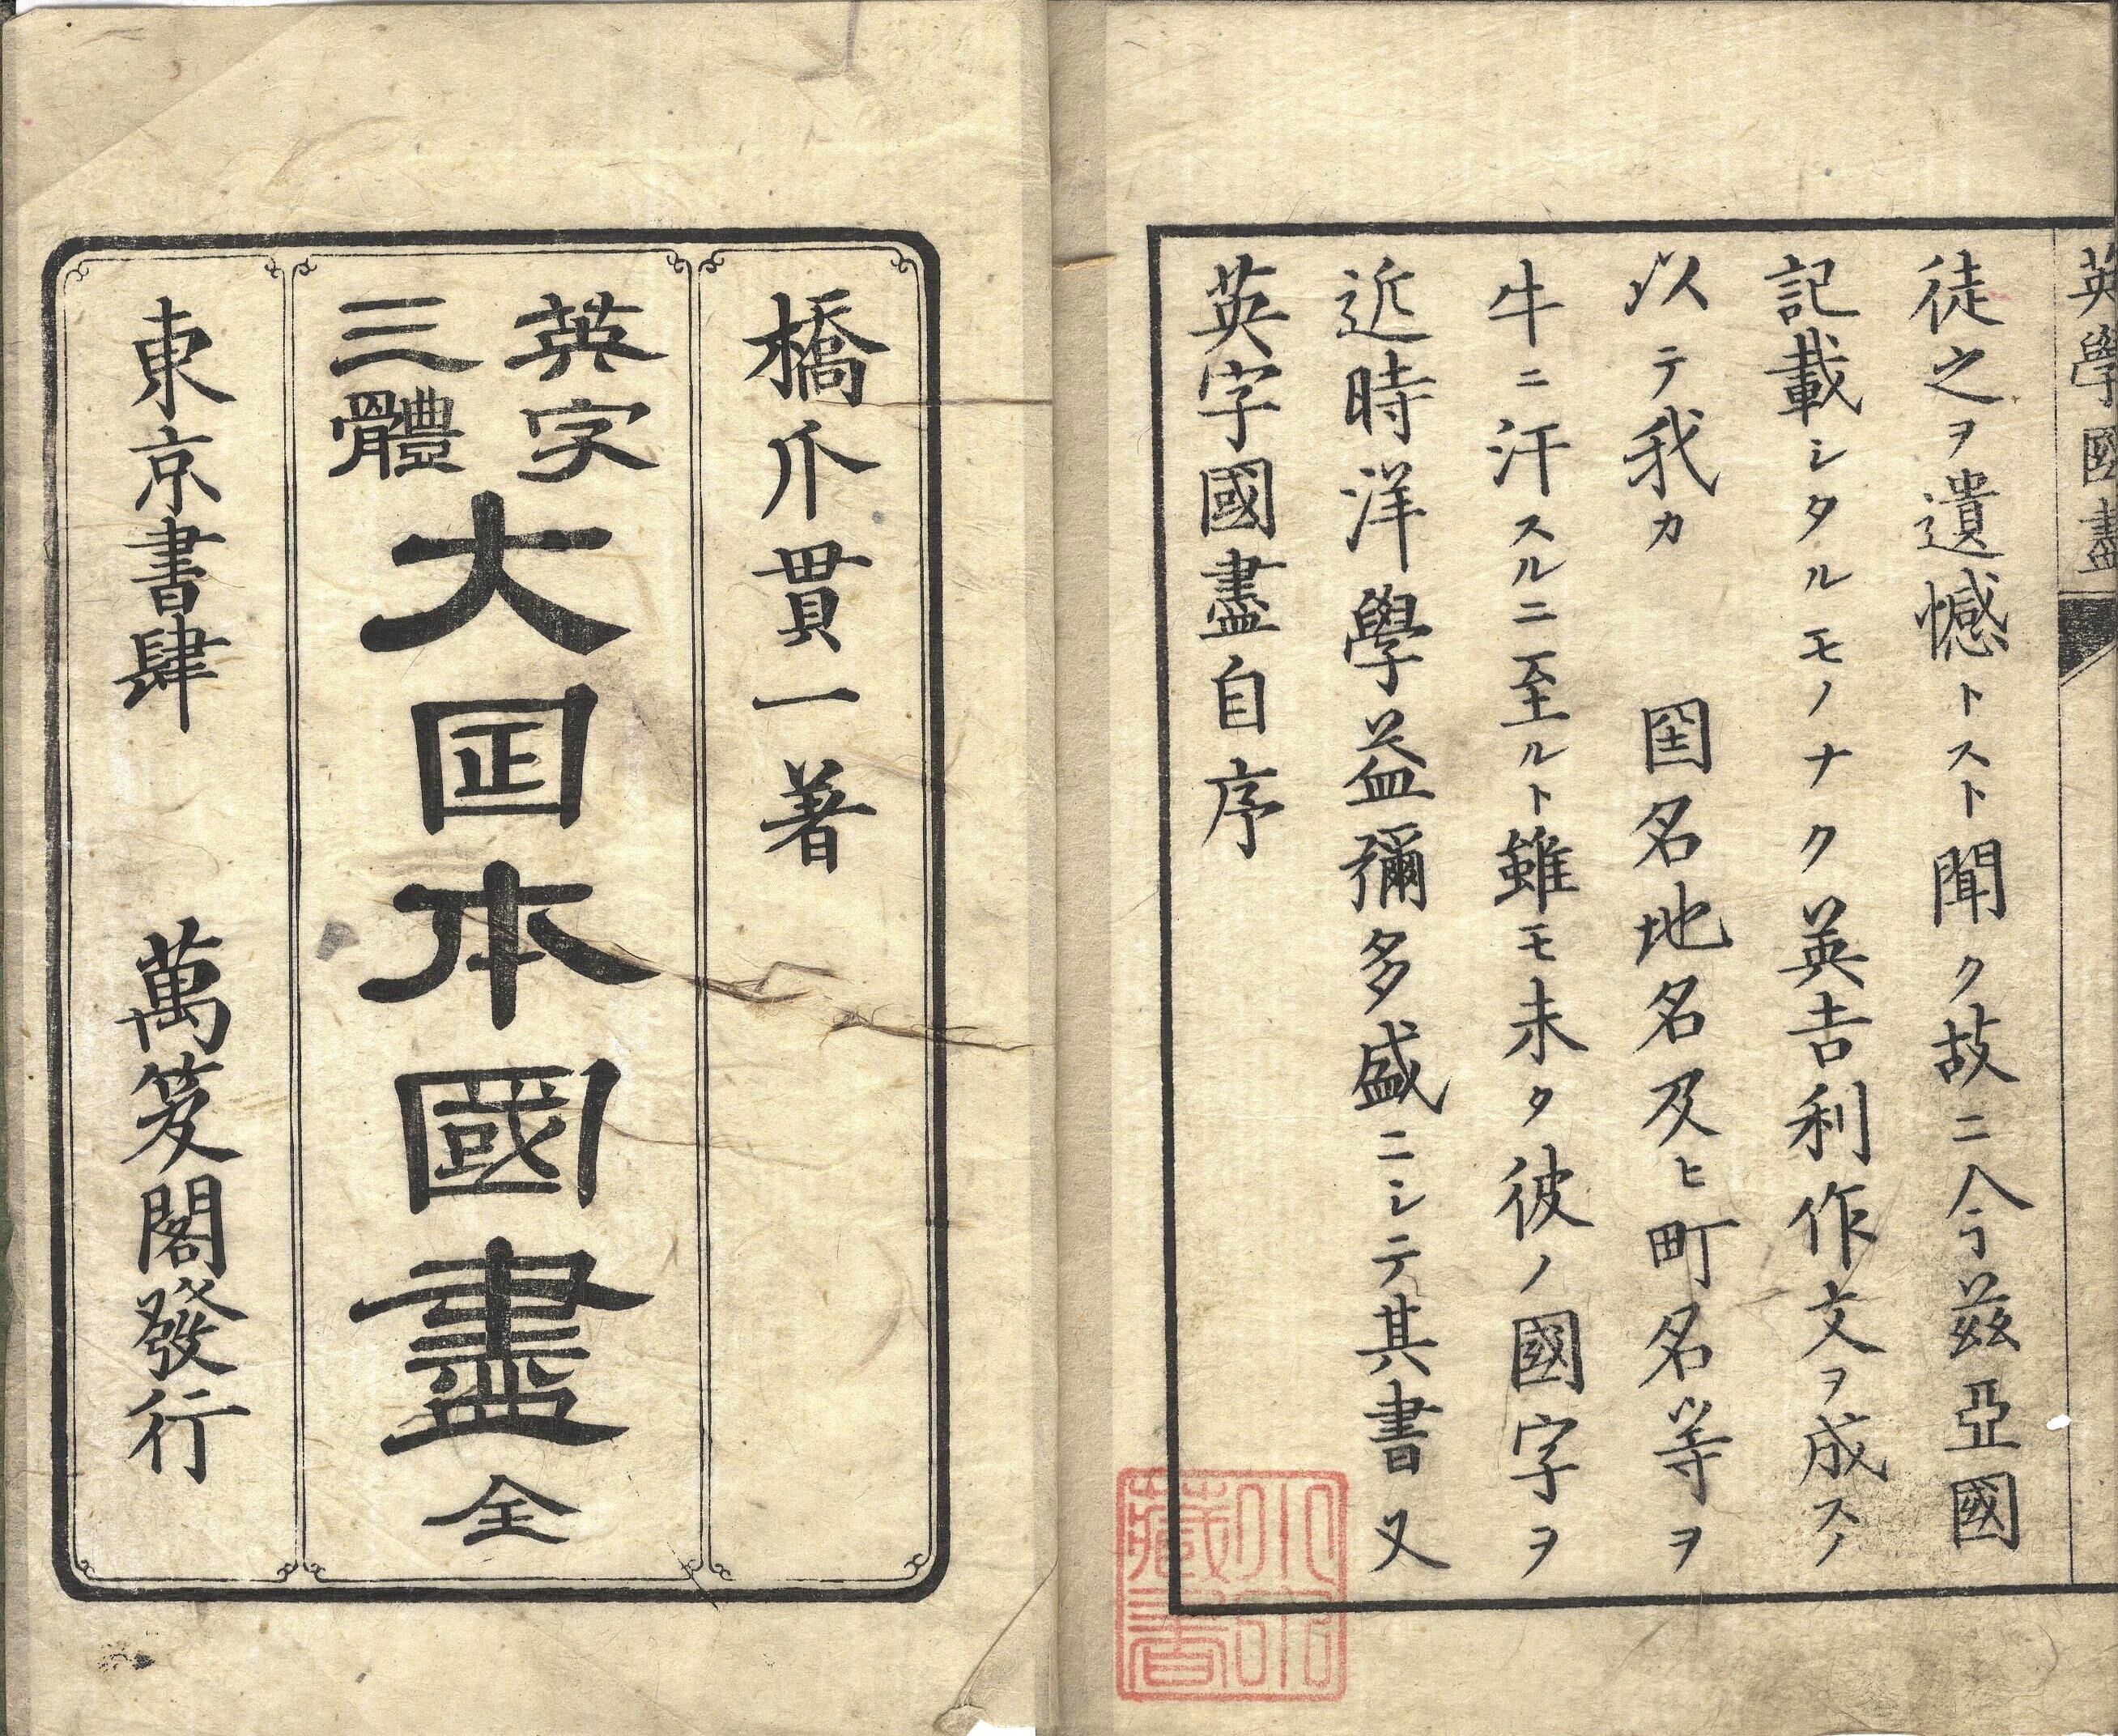 橋爪貫一著
英字
三體
大囸本國盡 全
東京書肆 萬笈閣發行
英字國盡自序
近時洋學益彌多盛ニシテ其書又
牛ニ汗スルニ至ルト雖モ未タ彼ノ國字ヲ
以テ我カ 国名地名及ヒ町名等ヲ
記載シタルモノナク英吉利作文ヲ成スノ
徒之ヲ遺憾トスト聞ク故ニ今茲亞國
英學國盡
藏書